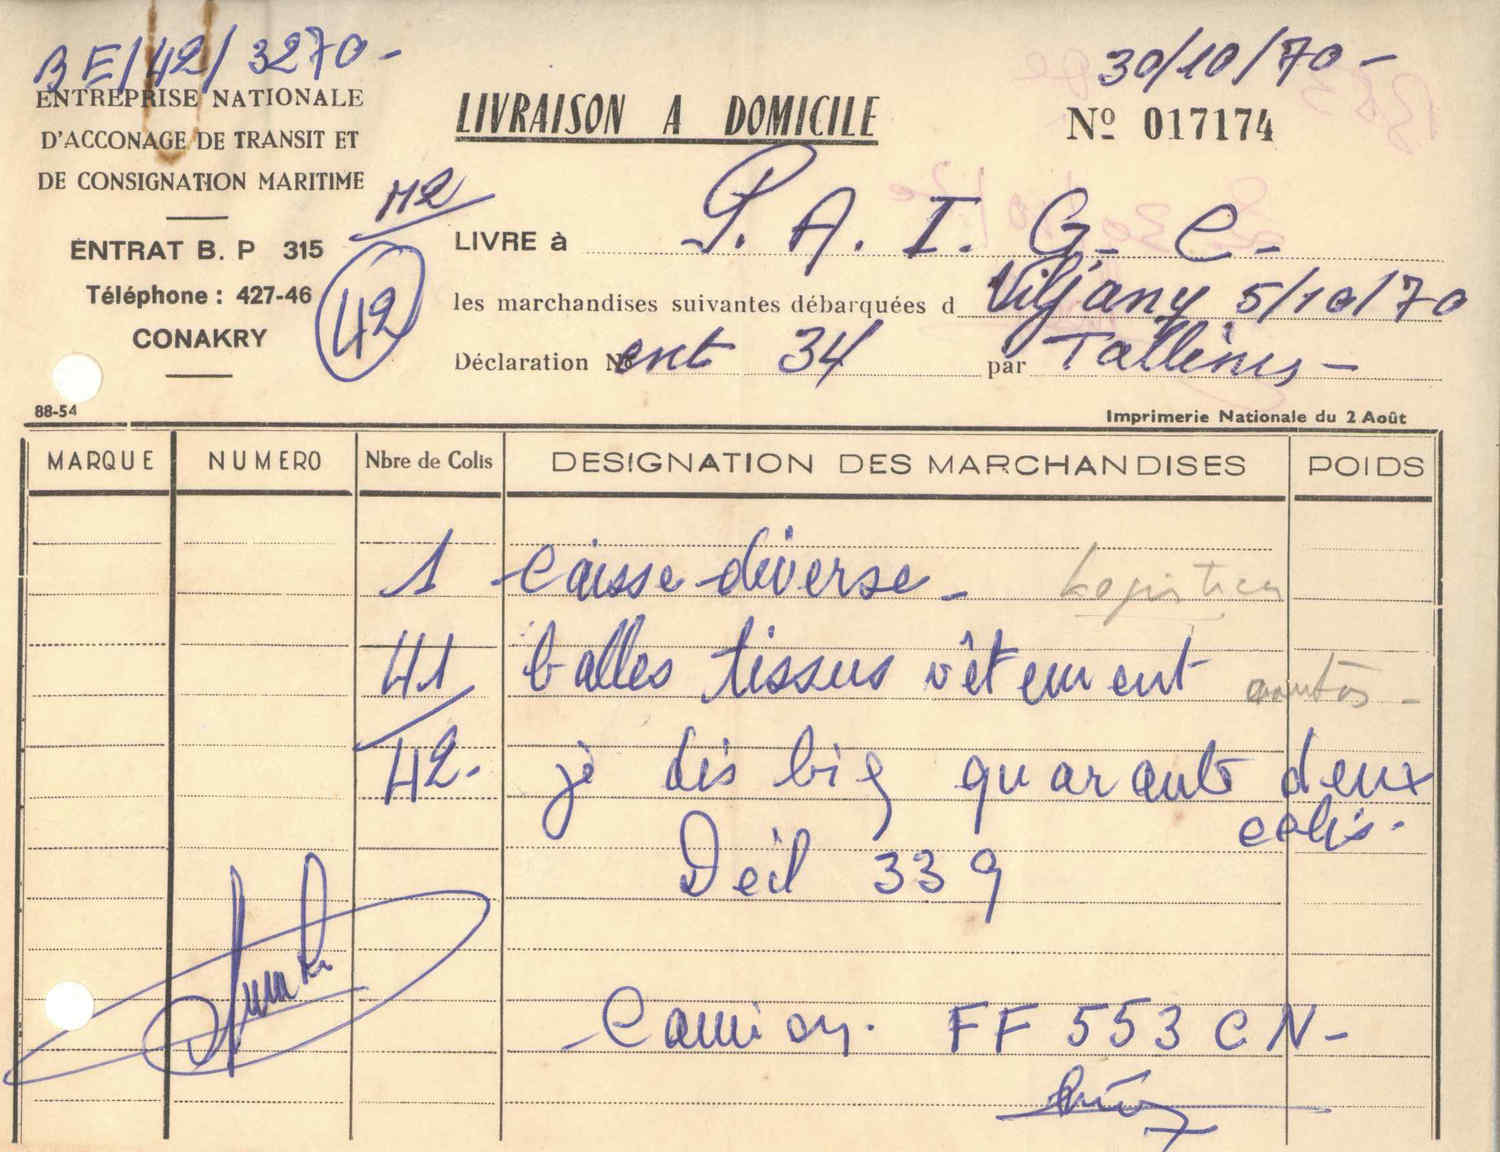 BE/42/3270-
30/10/70-
ENTREPRISE NATIONALE
D'ACCONAGE DE TRANSIT ET
DE CONSIGNATION MARITIME
ENTRAT B. P 315
Téléphone : 427-46
CONAKRY
42
LIVRAISON A DOMICILE
Nº 017174
LIVRE à P. A. I. G. C.
les marchandises suivantes débarquées d Viljany 5/10/70
Déclaration Nº ent 34 par Tallinns -
88-54
Imprimerie Nationale du 2 Août
MARQUE NUMERO Nbre de Colis DESIGNATION DES MARCHANDISES POIDS
1 Caisse diverse -
41 balles tissus vêtement
42. je dis big quarante deux
colis.
Deil 339
- Camion. FF 553 CN-